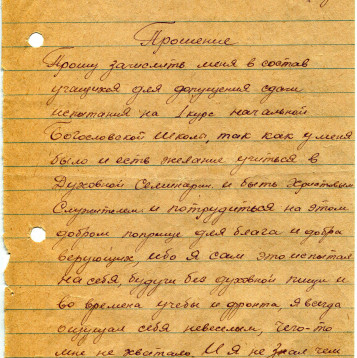 Прошение
Прошу зачислить меня в состав
учащихся для допущения сдачи
испытания на 1 курс начальной
Богословской Школы, так как у меня
было и есть желание учиться в
Духовной Семинарии и быть Христовым
Служителем и потрудиться на этом
добром поприще для блага и добра
верующих, ибо я сам это испытал
на себя, будучи без духовной пищи и
во времена учебы и фронта, я всегда
ощущал себя невеселым, чего-то
мне не хватало. И Я не знал чем